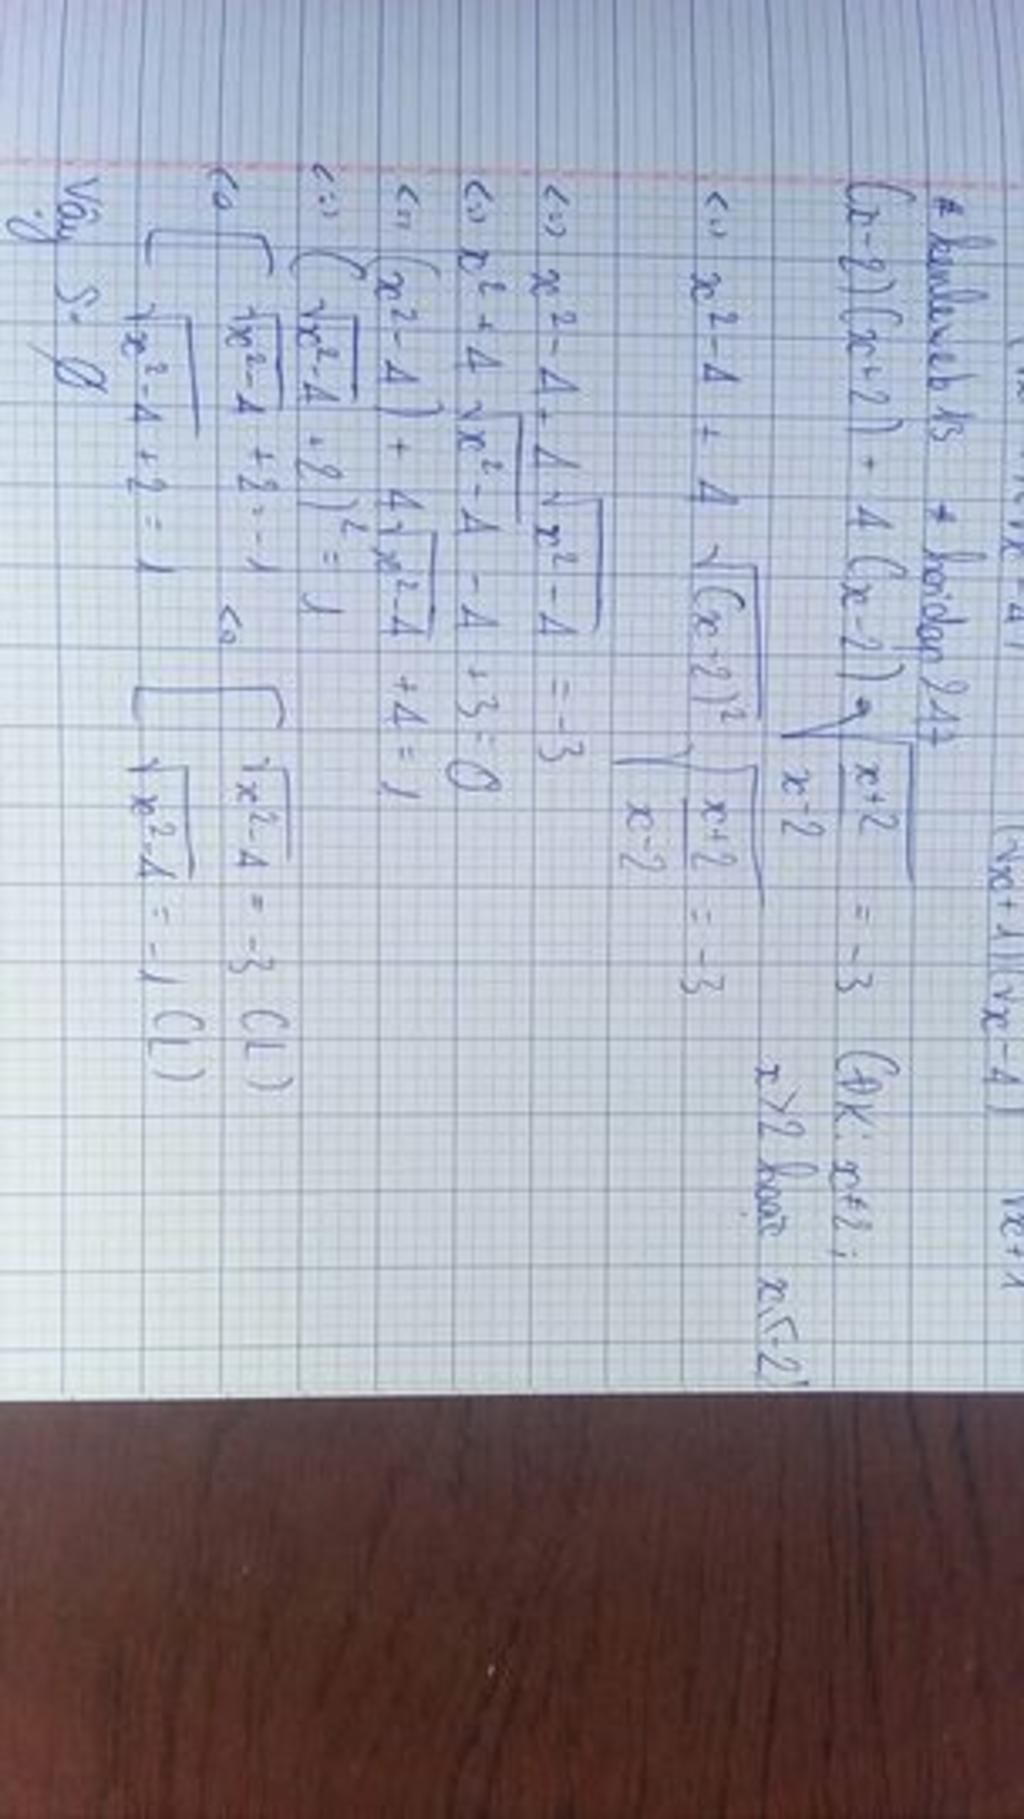 (√x+1)(√x-4) √x+1
# kimlaweb 13 # hoidap 247
(x-2)(x+2) + 4(x-2)√((x+2)/(x-2)) = -3 (ĐK: x≠2;
x>2 hoặc x≤-2)
<=> x²-4 + 4 √(x-2)² √((x+2)/(x-2)) = -3
<=> x²-4+4√(x²-4) = -3
<=> x²+4√(x²-4) -4+3=0
<=> (x²-4) + 4√(x²-4) +4=1
<=> (√(x²-4) +2)² = 1
<=> [ √(x²-4) +2=-1 <=> [ √(x²-4) = -3 (L)
√(x²-4) +2=1 √(x²-4) = -1 (L)
Vậy S= Ø